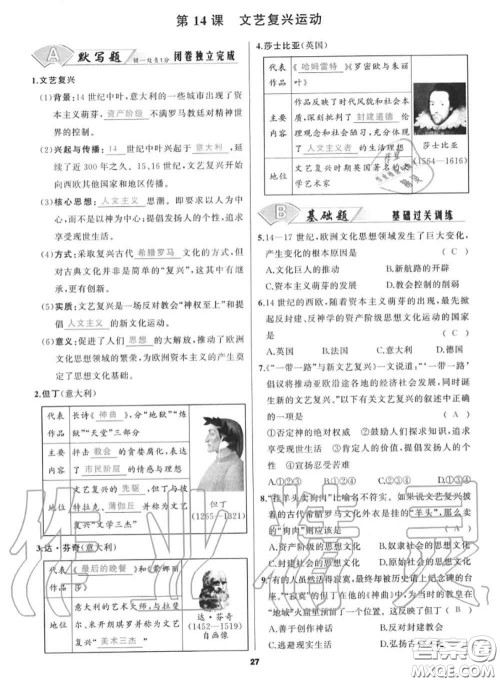 第14课 文艺复兴运动
A 默写题 错一处负1分 闭卷独立完成
1.文艺复兴
(1)背景:14世纪中叶,意大利的一些城市出现了资
本主义萌芽,资产阶级不满罗马教廷对精神世
界的控制。
(2)兴起与传播:14世纪中叶兴起于意大利,延
续了近300年之久。15、16世纪,文艺复兴开始
向西欧其他国家和地区传播。
(3)核心思想:人文主义思潮。即要求以人为中
心,而不是以神为中心;提倡发扬人的个性,追求
享受现世生活。
(4)方式:采取复兴古代希腊罗马文化的方式,但
对古典文化并非是简单的“复兴”,这其中有继
承,更有创新。
(5)实质:文艺复兴是一场反对教会“神权至上”和提
倡人文主义的新文化运动。
(6)意义:促进了人们思想的大解放,推动了欧洲
文化思想领域的繁荣,为欧洲资本主义的产生奠
定了思想文化基础。
2.但丁(意大利)
代表作品
长诗《神曲》,分“地狱”“炼
狱”“天堂”三部分
主要内容
抨击教会的贪婪腐化,表
达了市民阶层的情感与理想
地位
文艺复兴的先驱,但丁与彼
特拉克、薄伽丘并称为
文学“三杰”
但丁
(1265—1321)
3.达·芬奇(意大利)
《最后的晚餐》和《蒙娜丽
莎》
意大利的艺术大师,与拉斐
尔、米开朗琪罗并称为文艺
复兴“美术三杰”
达·芬奇
(1452—1519)
自画像
4.莎士比亚(英国)
代表作品
《哈姆雷特》《罗密欧与朱丽
叶》
主要内容
作品反映了时代风貌和社会本
质,深刻批判了封建道德伦
理观念和社会陋习,充分体现
了人文主义者的生活理想
地位
文艺复兴时期英国著名的戏剧
大师和文学艺术家
莎士比亚
(1564—1616)
B 基础题 基础过关训练
5.14—17世纪,欧洲文化思想领域发生了巨大变化,
产生变化的根本原因是 (C)
A.文化巨人的推动 B.新航路的开辟
C.资本主义的发展 D.教会控制的削弱
6.14世纪的西欧,随着资本主义萌芽的出现,最先掀
起反封建、反神学的资产阶级思想文化运动的国家
是 (C)
A.英国 B.法国 C.意大利 D.德国
7.《“一带一路”与新文艺复兴》一文说道:“‘一带一路’
倡议将推动亚欧沿途各地的经济社会发展,同时诞
生新的文艺复兴。”以下有关文艺复兴的叙述中正确
的一项是 (A)
①否定神的绝对权威 ②鼓励人们探求知识,追求
享受现世生活 ③肯定人的价值,提倡发扬人的个
性 ④宣扬忍受苦难
A.①②③ B.①②④ C.②③④ D.①③④
8.“挂羊头卖狗肉”比喻名不符实。如果说文艺复兴披
着的古代希腊罗马文化外衣是挂的“羊头”,那么卖
的“狗肉”则应该是
A.资产阶级思想文化 B.奴隶社会思想文化
C.封建社会思想文化 D.社会主义思想文化
9.“有人虽然活得寂寞,最终却被历史请上了纪念碑的
座席。”“寂寞”的但丁在他的《神曲》中,为当时的教皇在
“地域”火窟里预留了一个位置。这反映了但丁 (B)
A.善于创作神话 B.反对封建教会
C.生活非常艰难 D.弘扬古
27